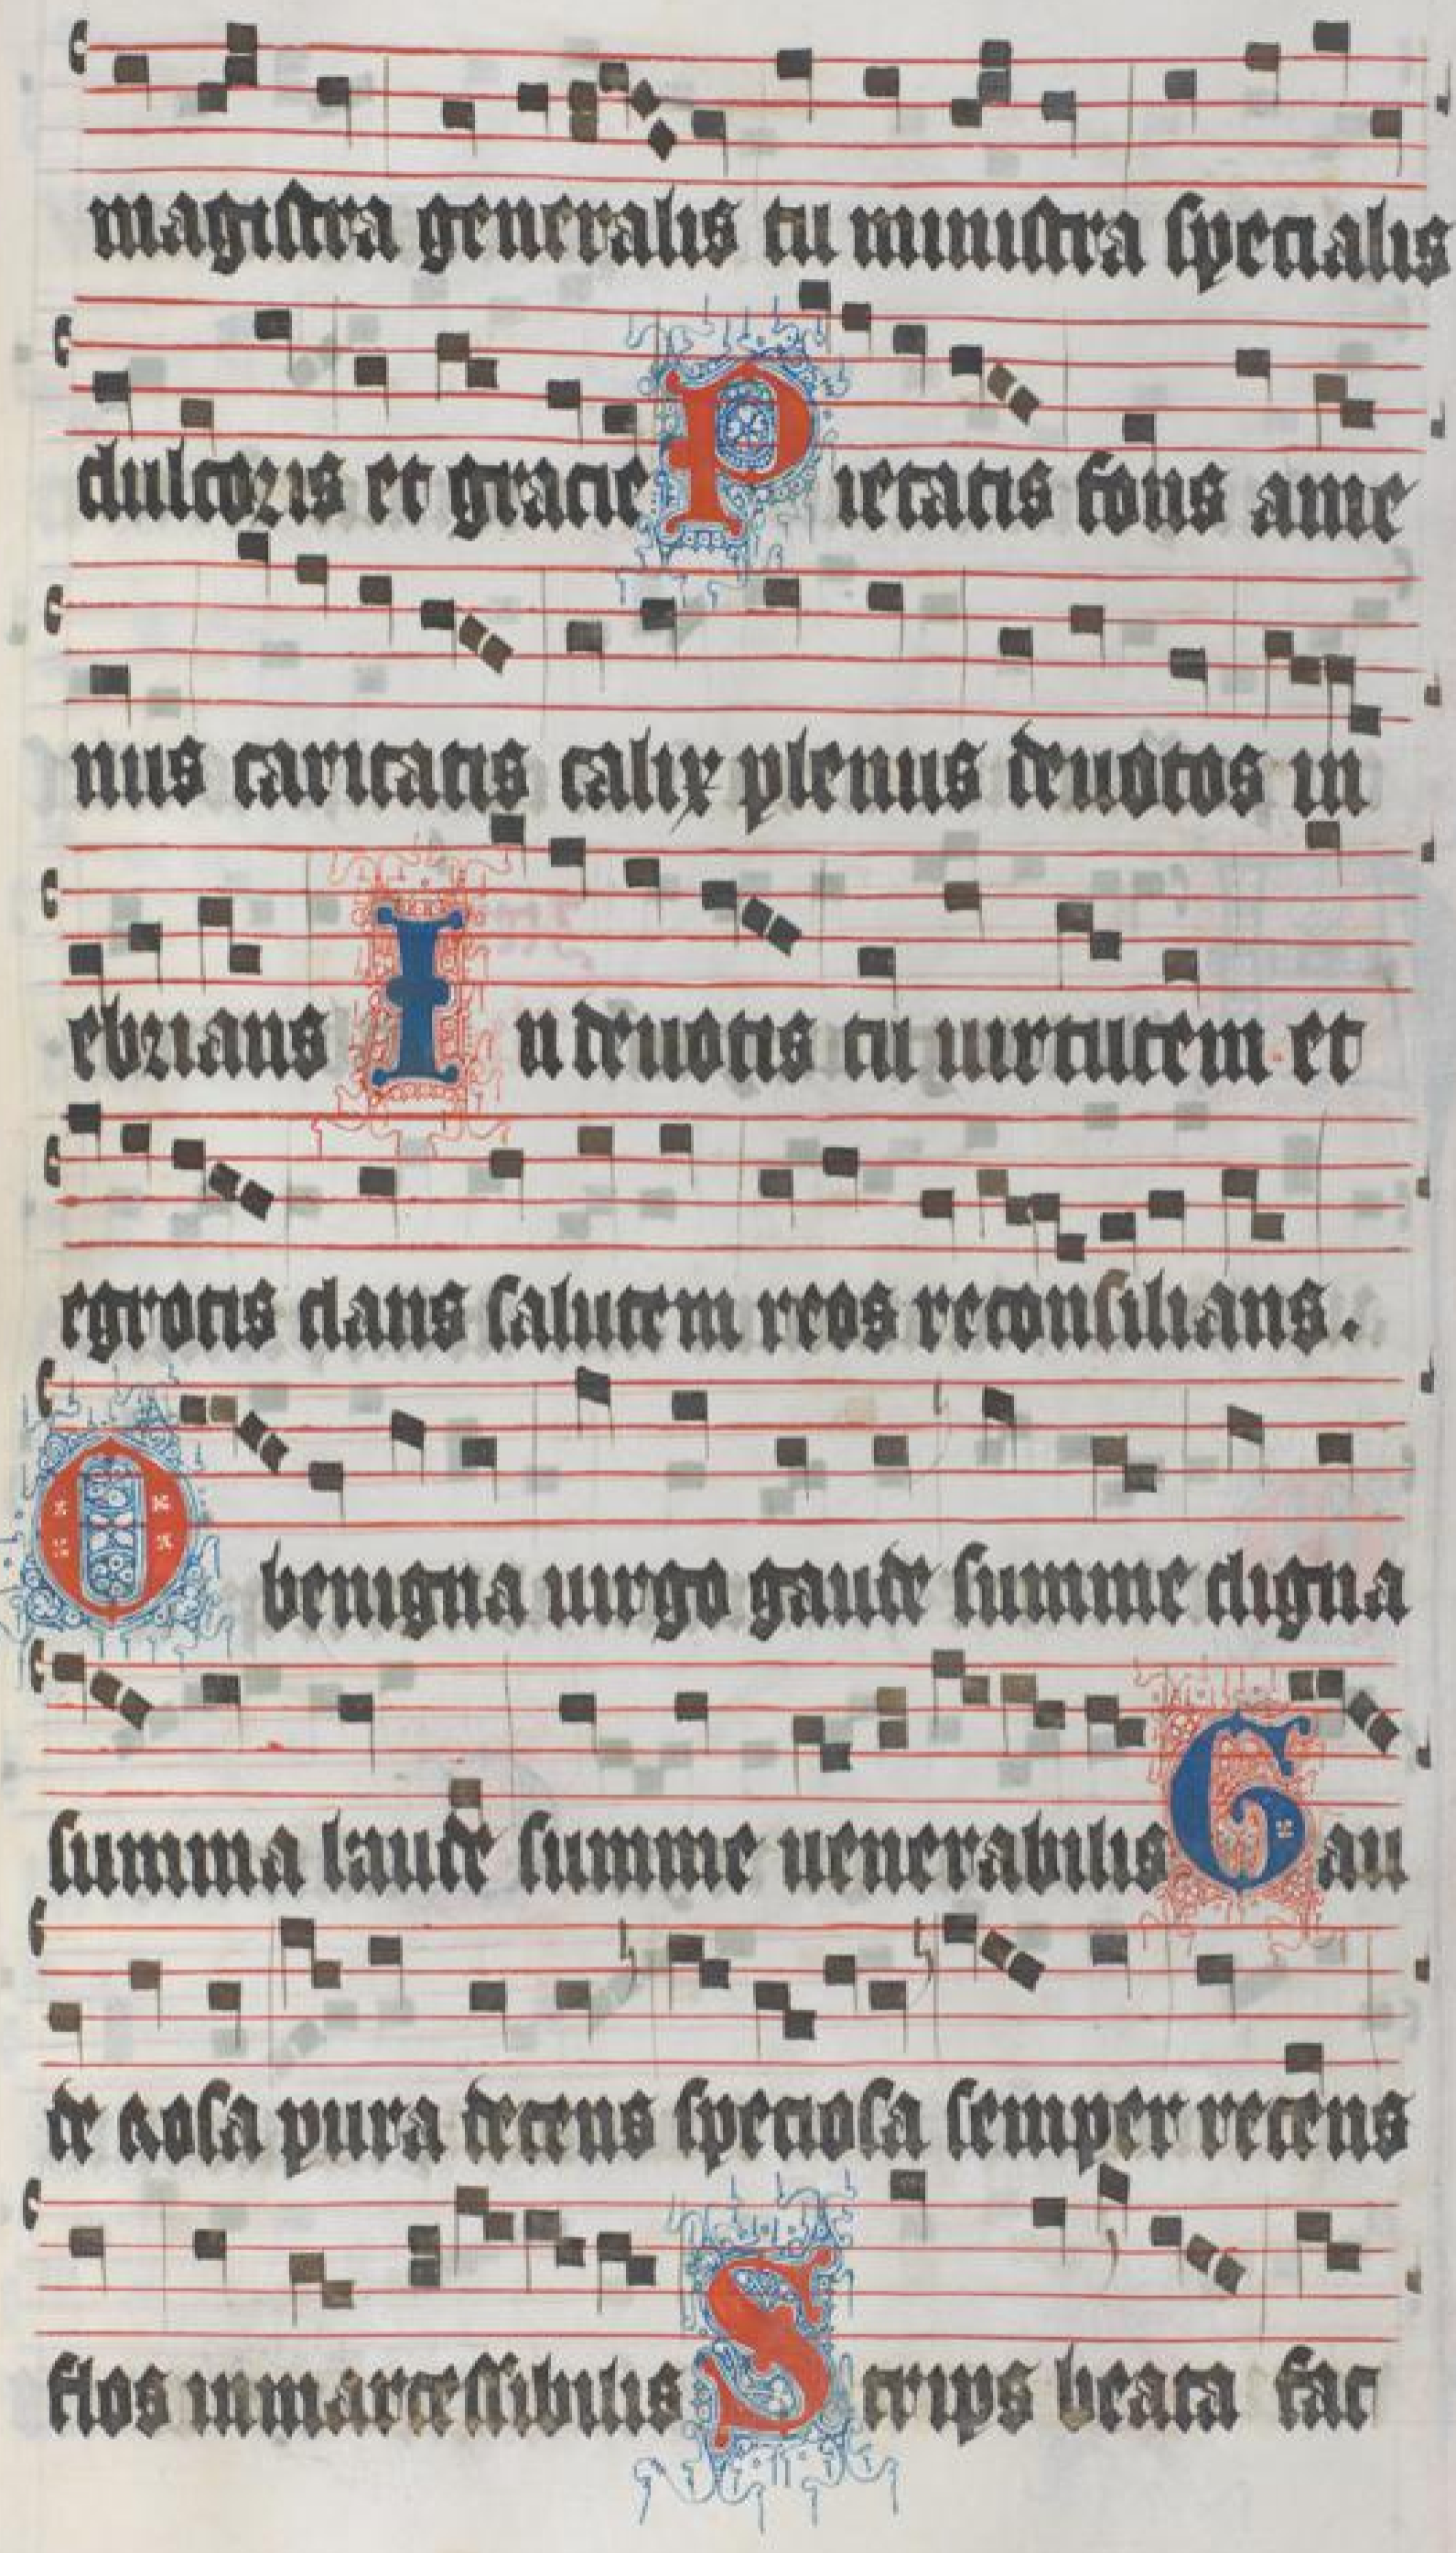 magistra generalis tu ministra specialis
dulcoris et gracie Pietatis fons ame
nus caritatis calix plenus deuotos in
ebrians In deuotis tu uirtutem et
egrotis dans salutem reos reconsilians.
O benigna uirgo gaude summe digna
summa laude summe uenerabilis Gau
de Rosa pura decens speciosa semper recens
flos inmarcessibilis Strips beata fac